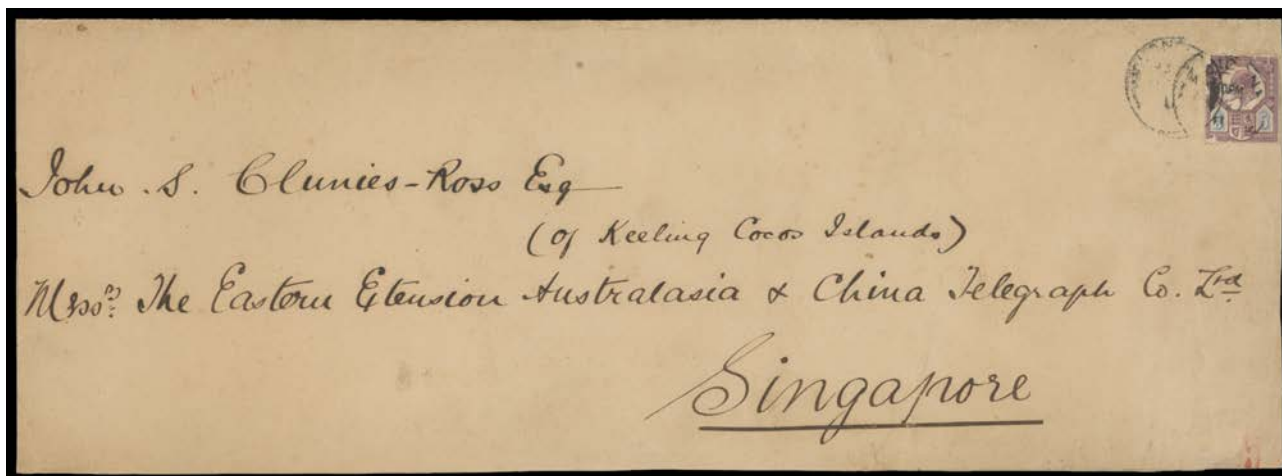 John . S. Clunies-Ross Esq
(Of Keeling Cocos Islands)
Messrs. The Eastern Etension Australasia & China Telegraph Co. Ltd
Singapore